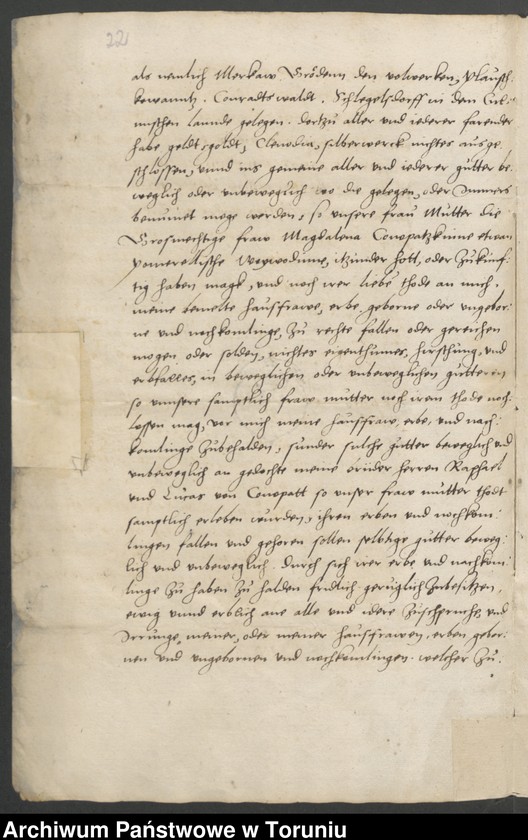 22
als nemlich Merkaw Grödenn den volwerken, Plausch
kewanntz. Conradtswaldt. Schlegelsdorff in dem Cul¬
mischen lannde gelegen. dortzu aller und iederer farender
habe geldt, goldt, Clenodia, silberwerck nichtes ausge
schlossen, unnd ins gemeine aller und iederer gütter be¬
weglich oder unbeweglich wo die gelegen, oder Immers
benuinet moge werden, so unsere frau Mutter die
Grosmechtige fraw Magdalena Conopatzkinne etwan
pomerellische Woywodinne, itzunder hott, oder Zukunf¬
tig haben magk, und noch irer liebe thode an mich,
meine bemelte hausfrawe, erbe, geborne oder ungebor¬
ne und nachkomlinge, Zu rechte fallen oder gereichen
mogen oder solden, nichtes eigenthumes, hirschung, und
erbfalles, in beweglichen oder unbeweglichen güttern
so unnsere samptlich fraw mutter noch irem thode noch
lossen mag, vor mich meine hausfraw, erbe, und nach¬
komlinge Zubehalden, sunder sulche gütter beweglich und
unbeweglich an gedochte meine brüder herren Raphael
und Lucas von Conopatt so unser fraw mutter thodt
samptlich erleben wurden, ihren erben und nochkom¬
lingen fallen und gehoren sollen selbtige gutter beweg¬
lich und unbeweglich durch sich irer erbe und nachkom¬
linge Zu haben Zu halden fridlich geruglich Zubesitzen,
ewig unnd erblich ane alle und idere Zuspruche und
Irrunge, meiner, oder meiner hausfrawen, erben, gebor¬
nen und ungebornen und nochkomlingen. welcher Zu¬
Archiwum Państwowe w Toruniu